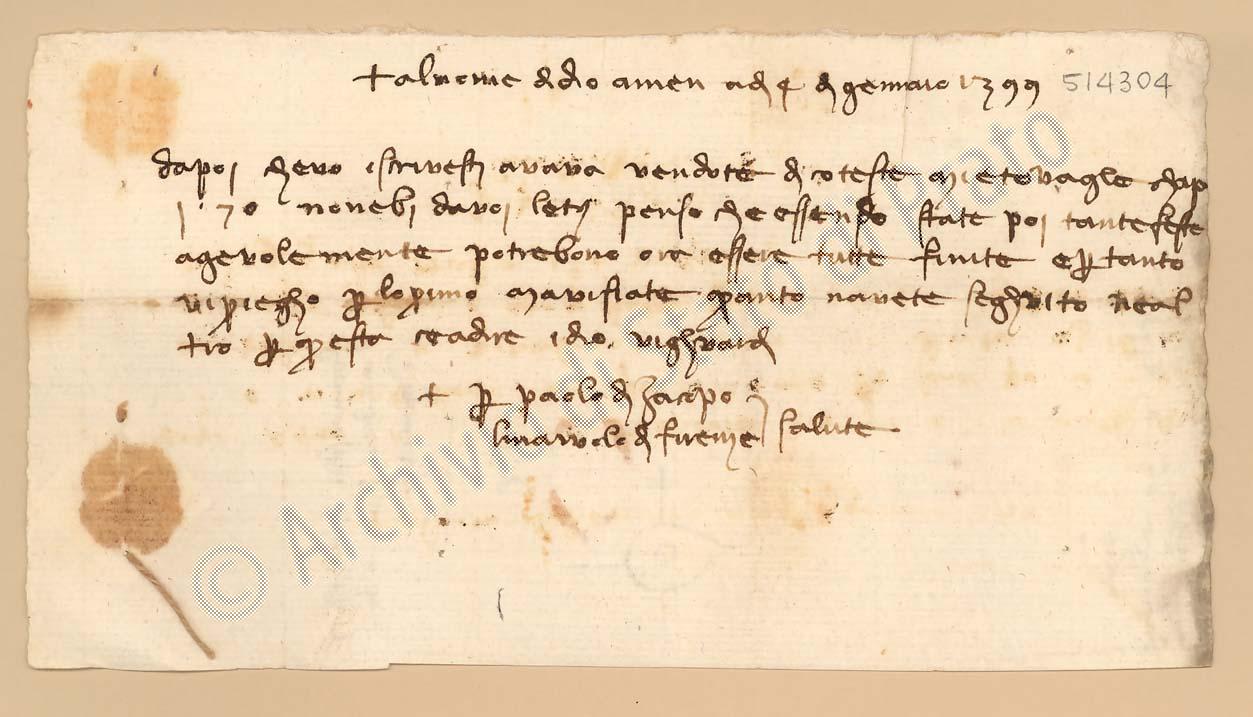 † al nome di dio amen adi 4 di gennaio 1399 514304
dapoi che vo iscrivesti avava vendute di coteste mie tovagle
i 70 nonebi davoi letera penso che essendo state poi tante feste
agevolemente potrebono ora essere tutte finite e per tanto
vi priegho per lo primo mavisiate quanto navete seghuito ne al
tro per questa ceadire idio vighuardi
† per paolo di Jacopo
linaiuolo di firenze salute
© Archivio di Stato di Prato